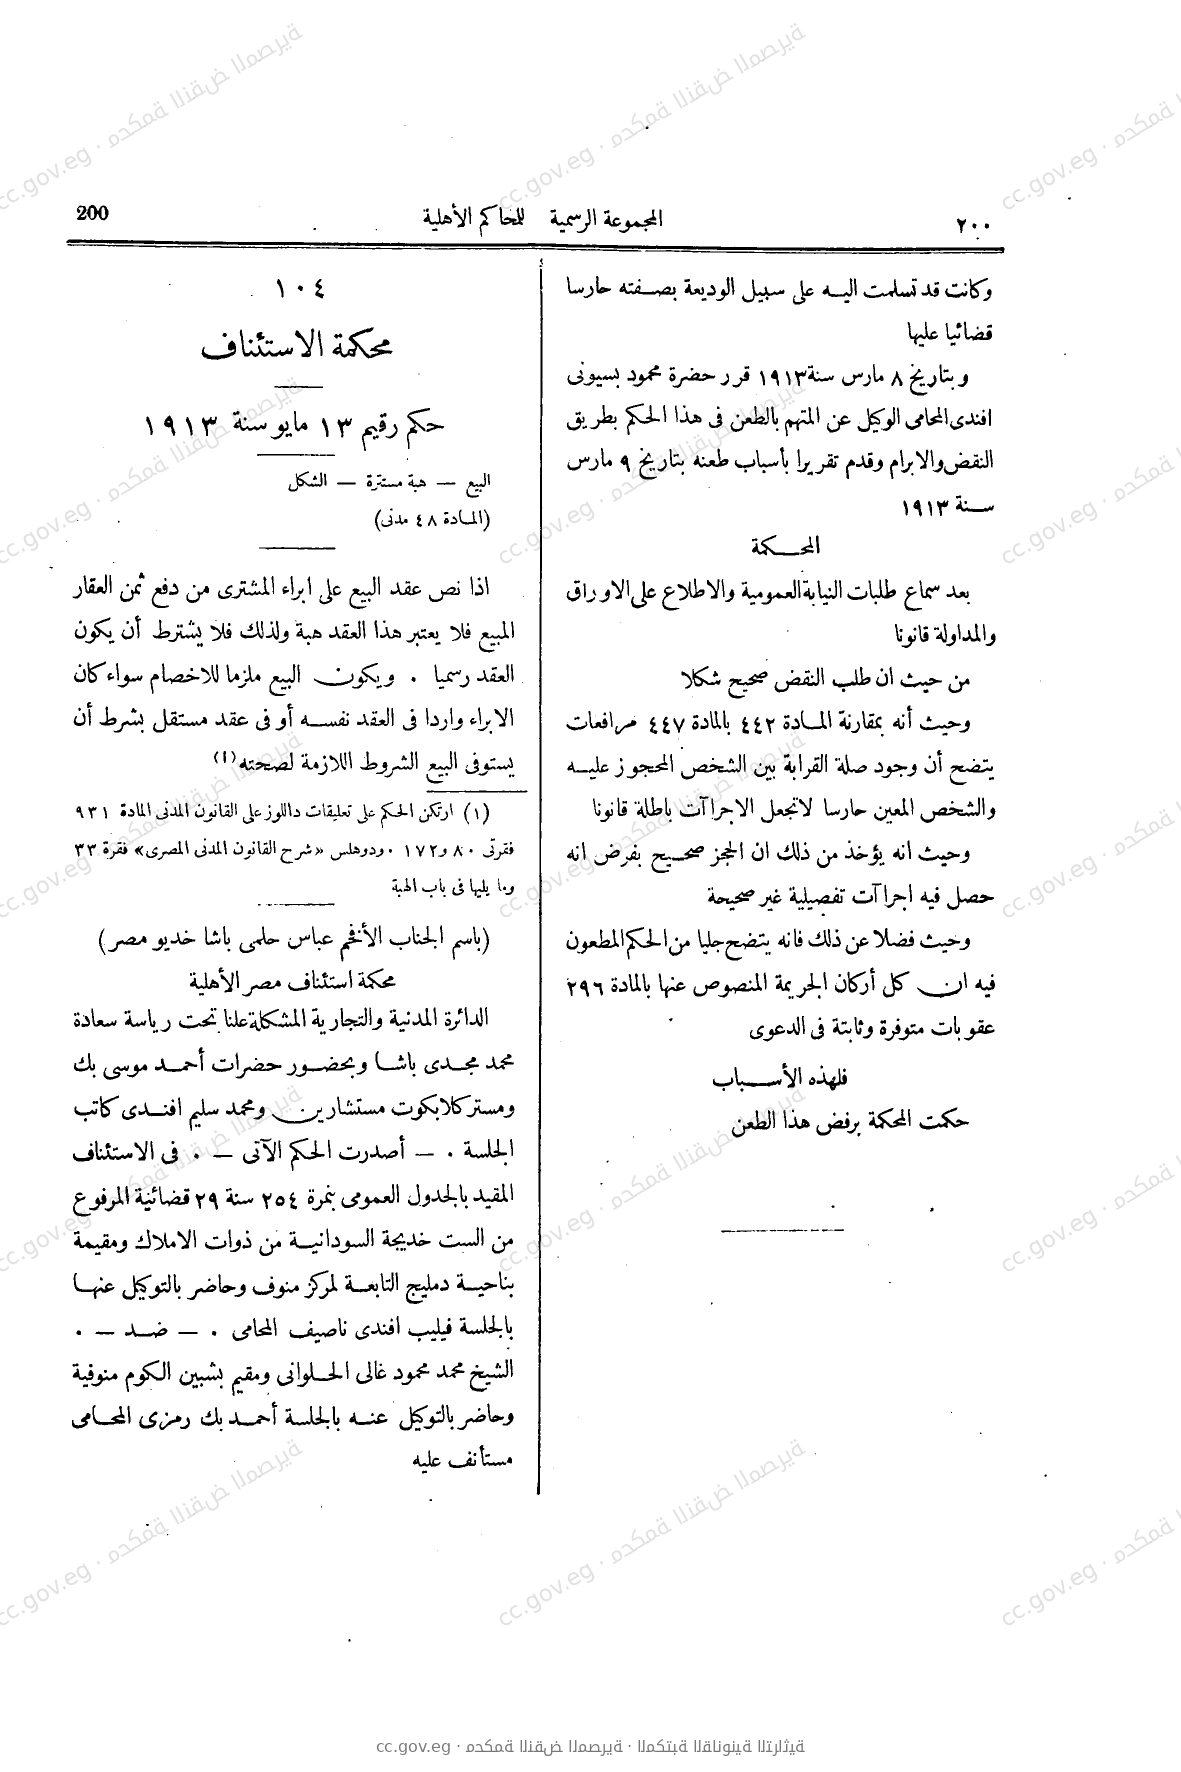 ٢٠٠
المجموعة الرسمية للمحاكم الأهلية
200
وكانت قد تسلمت اليه على سبيل الوديعة بصفته حارسا
قضائيا عليها
وبتاريخ ٨ مارس سنة ١٩١٣ قرر حضرة محمود بسيونى
افندى المحامى الوكيل عن المتهم بالطعن فى هذا الحكم بطريق
النقض والابرام وقدم تقريرا بأسباب طعنه بتاريخ ٩ مارس
سنة ١٩١٣
المحكمة
بعد سماع طلبات النيابة العمومية والاطلاع على الاوراق
والمداولة قانونا
من حيث ان طلب النقض صحيح شكلا
وحيث أنه بمقارنة المادة ٤٤٢ بالمادة ٤٤٧ مرافعات
يتضح أن وجود صلة القرابة بين الشخص المحجوز عليه
والشخص المعين حارسا لاتجعل الاجراآت باطلة قانونا
وحيث انه يؤخذ من ذلك ان الحجز صحيح بفرض انه
حصل فيه اجراآت تفصيلية غير صحيحة
وحيث فضلا عن ذلك فانه يتضح جليا من الحكم المطعون
فيه ان كل أركان الجريمة المنصوص عنها بالمادة ٢٩٦
عقوبات متوفرة وثابتة فى الدعوى
فلهذه الأسباب
حكمت المحكمة برفض هذا الطعن
١٠٤
محكمة الاستئناف
حكم رقيم ١٣ مايو سنة ١٩١٣
البيع — هبة مستترة — الشكل
(المادة ٤٨ مدنى)
اذا نص عقد البيع على ابراء المشترى من دفع ثمن العقار
المبيع فلا يعتبر هذا العقد هبة ولذلك فلا يشترط أن يكون
العقد رسميا . ويكون البيع ملزما للاخصام سواء كان
الابراء واردا فى العقد نفسه أو فى عقد مستقل بشرط أن
يستوفى البيع الشروط اللازمة لصحته (١)
(١) ارتكن الحكم على تعليقات داللوز على القانون المدنى المادة ٩٣١
فقرتى ٨٠ و١٧٢ . ودوهلس «شرح القانون المدنى المصرى» فقرة ٣٣
وما يليها فى باب الهبة
(باسم الجناب الأفخم عباس حلمى باشا خديو مصر)
محكمة استئناف مصر الأهلية
الدائرة المدنية والتجارية المشكلة علنا تحت رياسة سعادة
محمد مجدى باشا وبحضور حضرات أحمد موسى بك
ومستر كلايكوت مستشارين ومحمد سليم افندى كاتب
الجلسة . — أصدرت الحكم الآتى — . فى الاستئناف
المقيد بالجدول العمومى بنمرة ٢٥٤ سنة ٢٩ قضائية المرفوع
من الست خديجة السودانية من ذوات الاملاك ومقيمة
بناحية دمليج التابعة لمركز منوف وحاضر بالتوكيل عنها
بالجلسة فيليب افندى ناصيف المحامى . — ضد — .
الشيخ محمد محمود غالى الحلوانى ومقيم بشبين الكوم منوفية
وحاضر بالتوكيل عنه بالجلسة أحمد بك رمزى المحامى
مستأنف عليه
cc.gov.eg · محكمة النقض المصرية · المكتبة القانونية التراثية